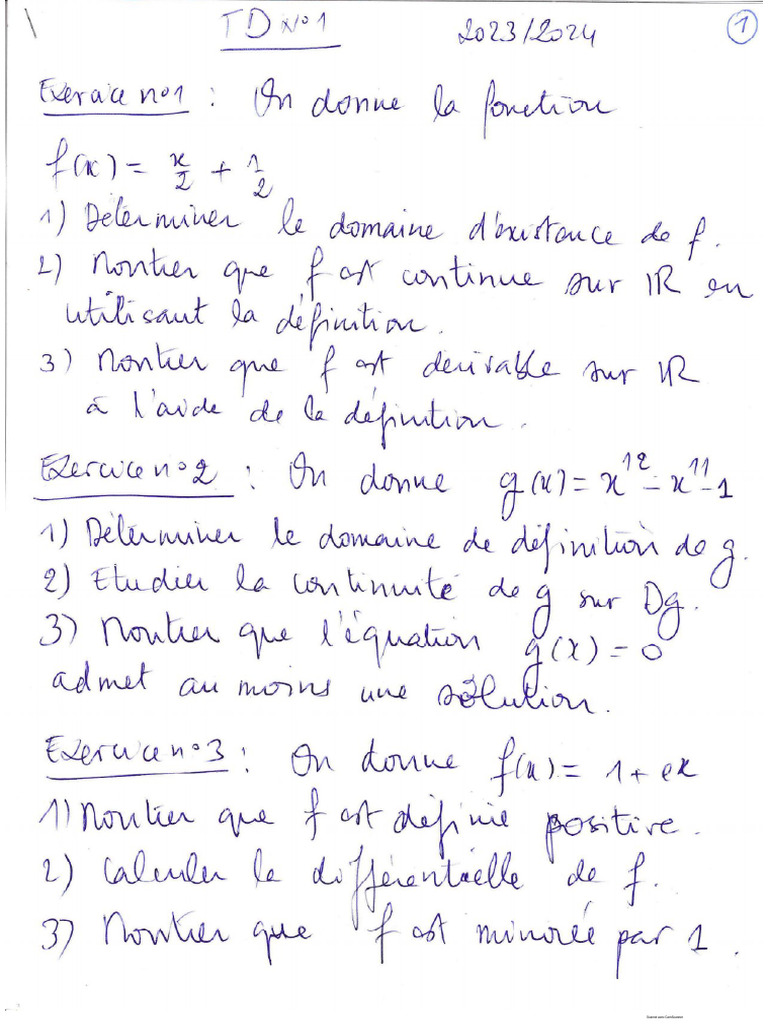 TD N°1 2023/2024 1
Exercice n°1 : On donne la fonction
f(x) = x/2 + 1/2
1) Déterminer le domaine d'éxistance de f.
2) Montrer que f est continue sur IR en
utilisant la définition.
3) Montrer que f est derivable sur IR
à l'aide de la définition.
Exercice n°2 : On donne g(x) = x¹² - x¹¹ - 1
1) Déterminer le domaine de définition de g.
2) Etudier la continuité de g sur Dg.
3) Montrer que l'équation g(x) = 0
admet au moins une solution.
Exercice n°3 : On donne f(x) = 1 + eˣ
1) Montrer que f est définie positive.
2) Calculer la différentielle de f.
3) Montrer que f est minorée par 1.
Scanné avec CamScanner